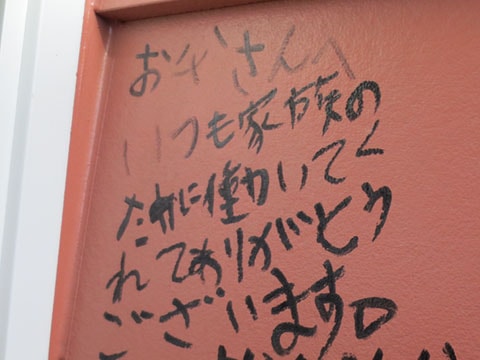 お父さんへ
いつも家族の
ために働いてく
れてありがとう
ございます。